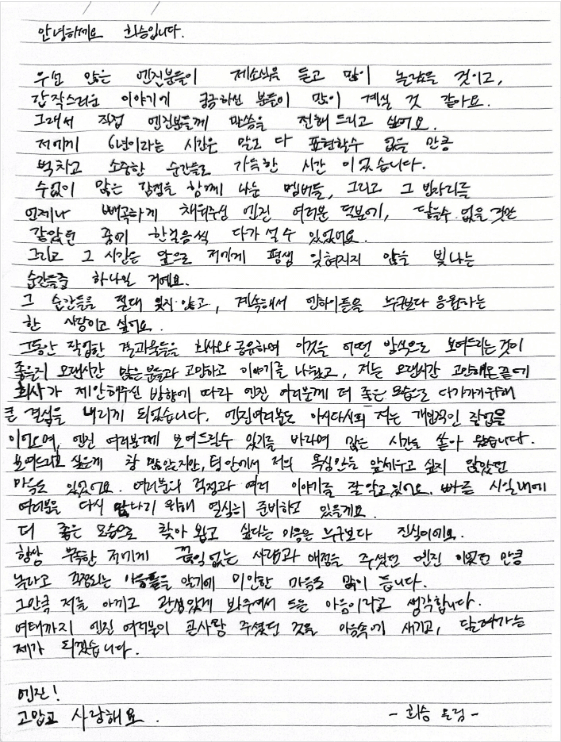 안녕하세요 희승입니다.
우선 많은 엔진분들이 제소식을 듣고 많이 놀랐을 것이고,
갑작스러운 이야기에 궁금하신 분들이 많이 계실 것 같아요.
그래서 직접 엔진분들께 말씀을 전해 드리고 싶어요.
저에게 6년이라는 시간은 말로 다 표현할수 없을 만큼
벅차고 소중한 순간들로 가득한 시간 이었습니다.
수없이 많은 감정을 함께 나눈 멤버들, 그리고 그 빈자리를
언제나 빼곡하게 채워주신 엔진 여러분 덕분에, 닿을수 없을 것만
같았던 꿈에 한걸음씩 다가설 수 있었어요.
그리고 그 시간은 앞으로 저에게 평생 잊혀지지 않을 빛나는
순간들중 하나일 거예요.
그 순간들을 절대 잊지 않고, 계속해서 엔하이픈을 누구보다 응원하는
한 사람이고 싶어요.
그동안 작업한 결과물들을 회사와 공유하며 이것을 어떤 방식으로 보여드리는것이
좋을지 오랜시간 많은 분들과 고민하고 이야기를 나눴고, 저는 오랜시간 고민해온끝에
회사가 제안해주신 방향에 따라 엔진 여러분께 더 좋은 모습으로 다가가기위해
큰 결심을 내리게 되었습니다. 엔진여러분도 아시다시피 저는 개인적인 작업을
이어오며, 엔진 여러분께 보여드릴수 있기를 바라며 많은 시간을 쏟아 왔습니다.
보여드리고 싶은게 참 많았지만, 팀 안에서 저의 욕심만을 앞세우고 싶지 않았던
마음도 있었어요. 여러분의 걱정과 여러 이야기를 잘 알고있어요. 빠른 시일내에
여러분을 다시 만나기 위해 열심히 준비하고 있을게요.
더 좋은 모습으로 찾아 뵙고 싶다는 마음은 누구보다 진심이에요.
항상 부족한 저에게 끊임없는 사랑과 애정을 주셨던 엔진 이었던 만큼
놀라고 걱정되는 마음들을 알기에 미안한 마음도 많이 듭니다.
그만큼 저를 아끼고 관심있게 봐주셔서 드는 마음이라고 생각합니다.
여태까지 엔진 여러분이 큰사랑 주셨던 것을 마음속에 새기고, 달려가는
제가 되겠습니다.
엔진!
고맙고 사랑해요.
- 희승 드림 -